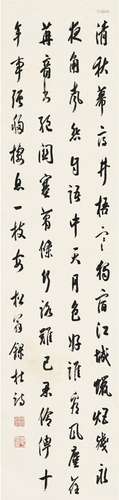 清秋幕府井梧寒獨宿江城蠟炬殘永
夜角聲悲自語中天月色好誰看風塵荏
苒音書絕關塞蕭條行路難已忍伶俜十
年事強移棲息一枝安 松翁錄杜詩